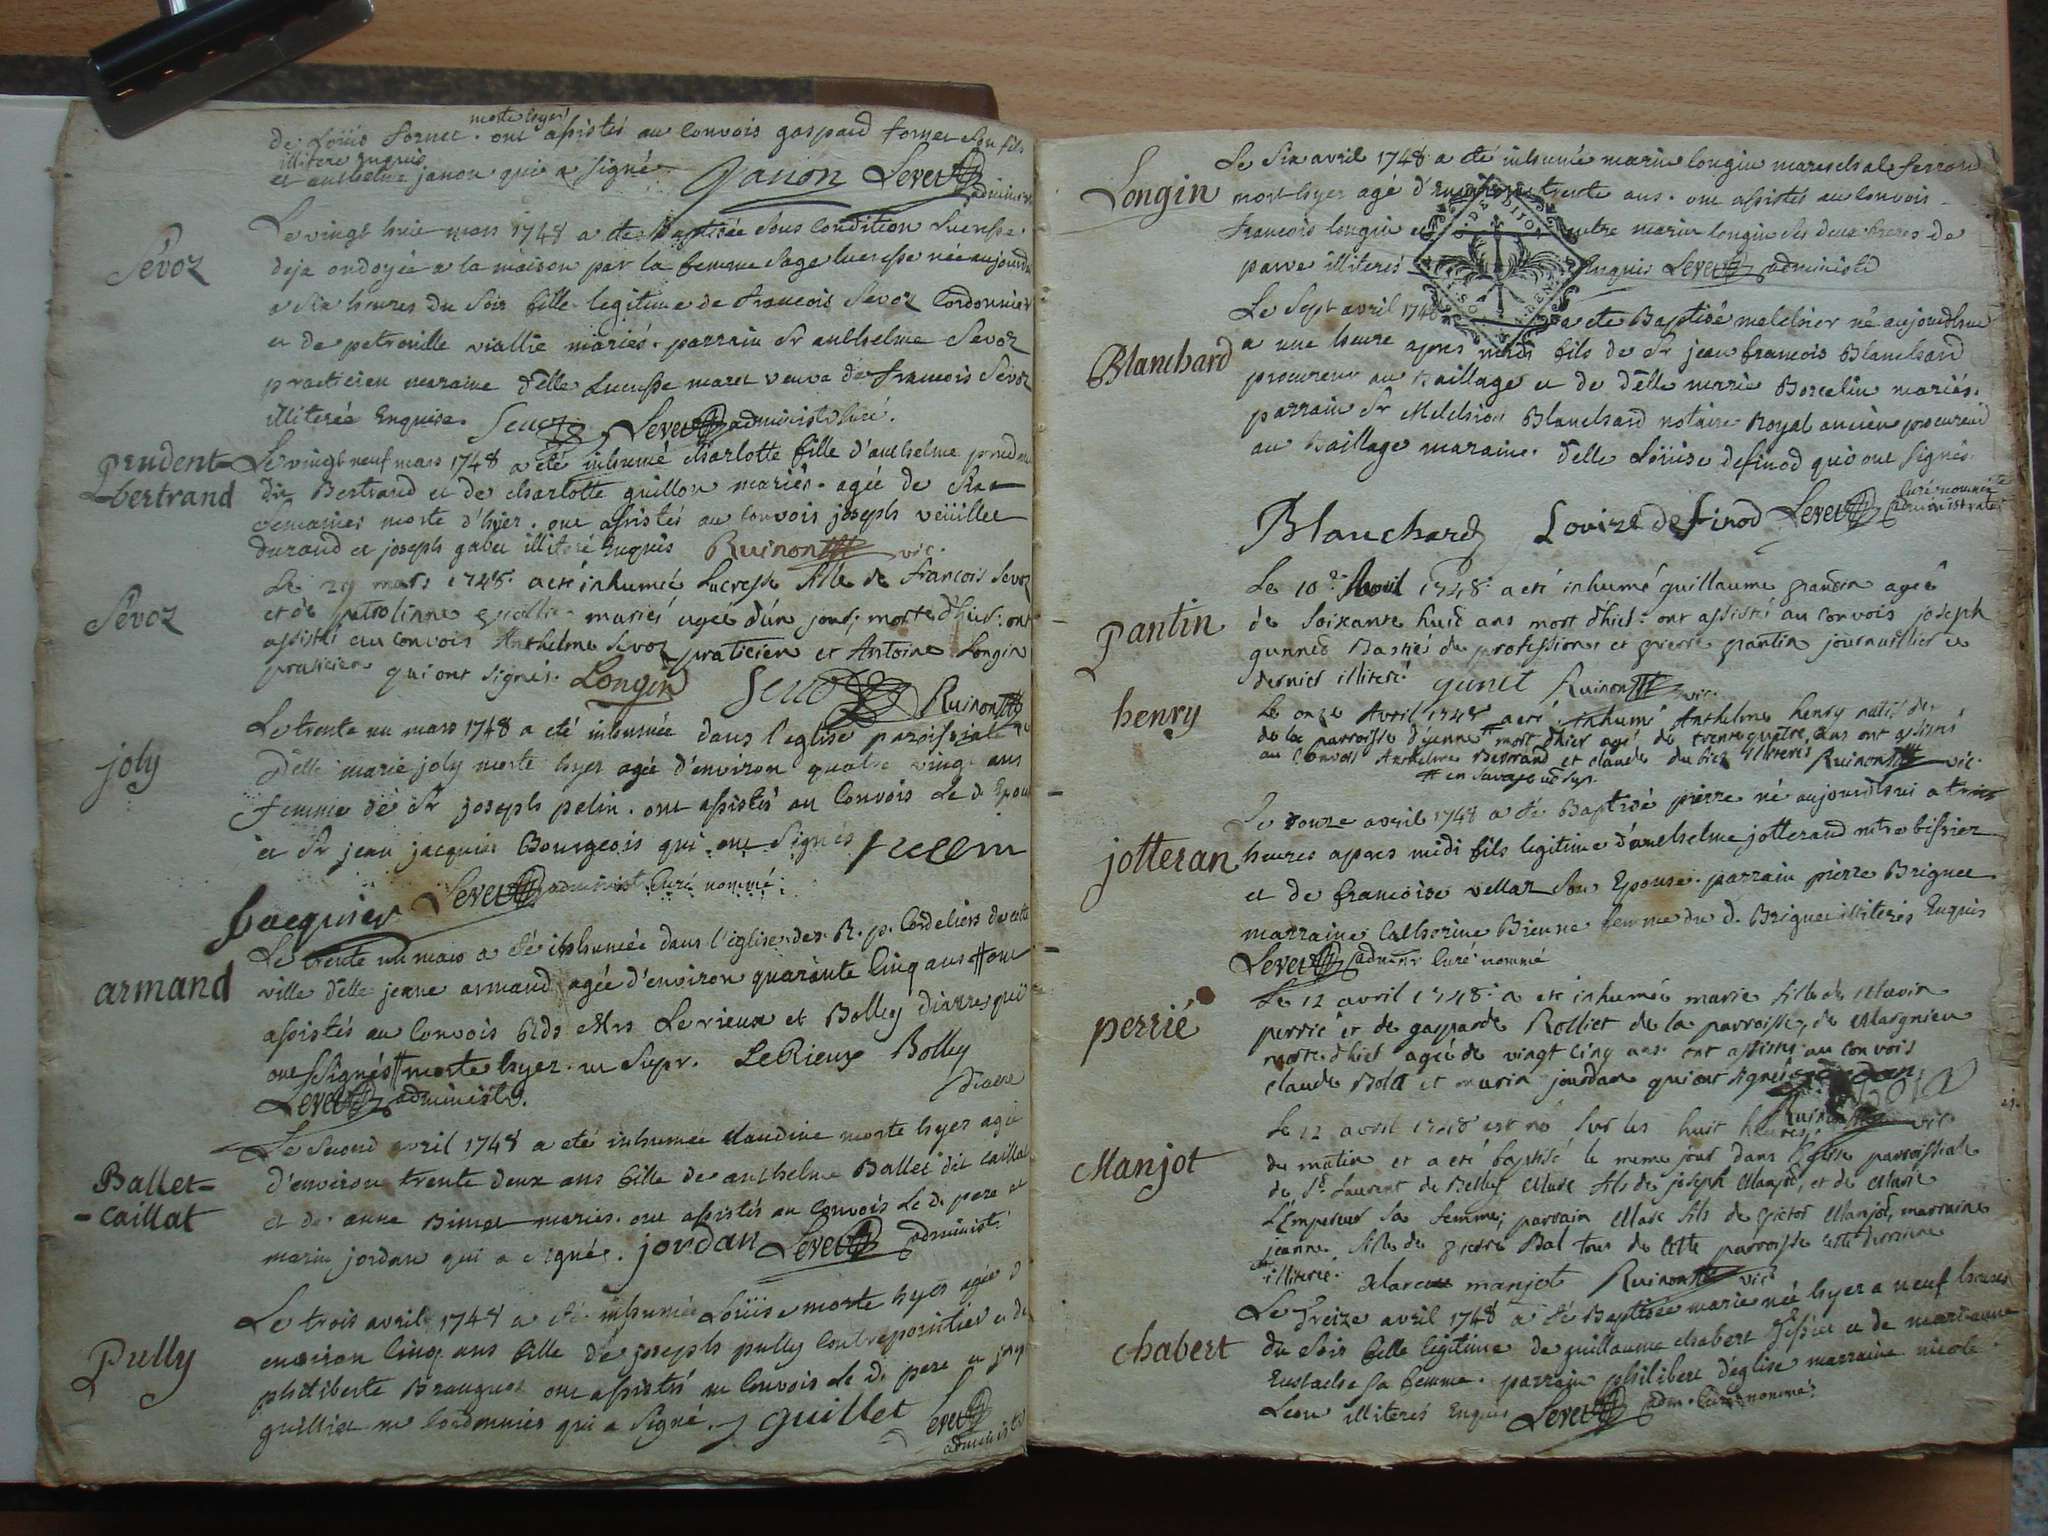 de Loüis fornet. morte hyer ont assistés au convois gaspard fornet son fils
illiteré enquis
et anthelme janon qui a signé Janon Levet
administ
Sévoz
Le vingt huit mars 1748 a été baptisée sous condition Lucresse
deja ondoyée a la maison par la femme sage lucresse née aujourd
a six heures du soir fille legitime de francois Sevoz Cordonnier
et de petronille viallie mariés. parrain Sr anthelme Sevoz
practicien maraine delle Lucresse maret veuve de francois Sevoz
illiterée Enquise. Sevoz Levet administ Curé.
Prudent-
bertrand
Le vingt neuf mars 1748 a été inhumé charlotte fille d'anthelme prudent
dit Bertrand et de charlotte guillon mariés. agée de six
semaines morte d'hyer. ont assistés au convois joseph
durand et joseph gabet illiteré Enquis Ruinon vic.
Sévoz
Le 29 mars 1748. a eté inhumée Lucresse fille de francois Sevoz
et de mariés agée d'un jour, morte d'hier. ont
assistés au convois Anthelme Sevoz praticien et Antoine Longin
praticien qui ont signés. Longin Sevoz Ruinon
joly
Le trente un mars 1748 a eté inhumée dans l'eglise paroissiale
Delle marie joly morte hyer agée d'environ quatre vingt ans
femme de Sr joseph pelin. ont assistés au Convois Le d. Epoux
et Sr jean jacquier Bourgeois qui ont signés pelin
Jacquier Levet administ Curé nommé
armand
Le trente un mars a été inhumée dans l'église des R. p. Cordeliers de cette
ville delle jeane armand agée d'environ quarante cinq ans # ont
assistés au Convois Rds Mrs Lerieux et Bolley diacre qui
ont signés # morte hyer. ut supr. LeRieux Bolley
diacre
Levet administ.
Ballet-
-caillat
Le second avril 1748 a eté inhumée claudine morte hyer agée
d'environ trente deux ans fille de anthelme Ballet dit caillat
et de anne Binet mariés. ont assistés au Convois Le d. pere et
marin jordan qui a signé. jordan Levet administ.
Pully
Le trois avril 1748 a été inhumée Loüise morte hyer agée d
environ cinq ans fille de joseph pully contrepointier et de
philiberte ont assistés au Convois le d. pere et
guilliet me Cordonnier qui a signé. J guillet Levet
administ
Longin
Le six avril 1748 a eté inhumé marin longin mareschal ferrand
mort hyer agé d'environ trente ans. ont assistés au Convois
francois longin et autre marin longin ses deux freres de
parre illiterés Enquis Levet administ
DE DIJON
Blanchard
Le sept avril 1748 a été Baptisé melchior né aujourdhuy
a une heure apres midi fils de Sr jean francois Blanchard
procureur au Baillage et de delle marie Borcelin mariés.
parrain Sr Melchior Blanchard notaire Royal ancien procureur
au Baillage maraine. delle Loüise definod qui ont signés.
Blanchard Louize de finod Levet Curé nommé
administrateur
Pantin
Le 10e Avril 1748. a eté inhumé guillaume pantin agé
de soixante huit ans mort d'hier. ont assisté au convois joseph
gunnet de profession et pierre pantin journallier ce
dernier illiteré gunet Ruinon vic.
henry
Le onze Avril 1748 a eté inhumé Anthelme henry natif de
de la parroisse d'yenne # mort d'hier agé de trente quatre ans ont assisté
au Convois Anthelme Bertrand et claude illiterés Ruinon vic.
# en Savoye
jotteran
Le Douze avril 1748 a été Baptisé pierre né aujourdhui a trois
heures apres midi fils legitime d'anthelme jotterand
et de francoise vellaz son Epouse. parrain pierre Brignet
marraine Catherine Bienne femme du d. Brignet illiterés Enquis
Levet admr Curé nommé
perrié
Le 12 avril 1748. a eté inhumée marie fille de Marin
perrié et de gasparde Rolliet de la parroisse de Margnieu
morte d'hier agée de vingt cinq ans. ont assistés au convois
claude Bola et marin jourdan qui ont signés jordan
Bola
Ruinon vic.
Manjot
Le 12 avril 1748 est né sur les huit heures
du matin et a eté baptisé le meme jour dans L'eglise parroissiale
de St Laurent de Belley Marc fils de joseph Manjot, et de Marie
L'Empereur sa femme; parrain Marc fils de victor Manjot, marraine
jeanne fille de pierre Bal tous de cette parroisse cette derniere
illiterée. Marc manjot Ruinon vic
chabert
Le Treize avril 1748 a été Baptisée marie née hyer a neuf heures
du soir fille legitime de guillaume chabert Tissier et de marianne
Eustache sa femme. parrain philibert d'eglise marraine nicole
Leon illiterés Enquis Levet adm. Curé nommé